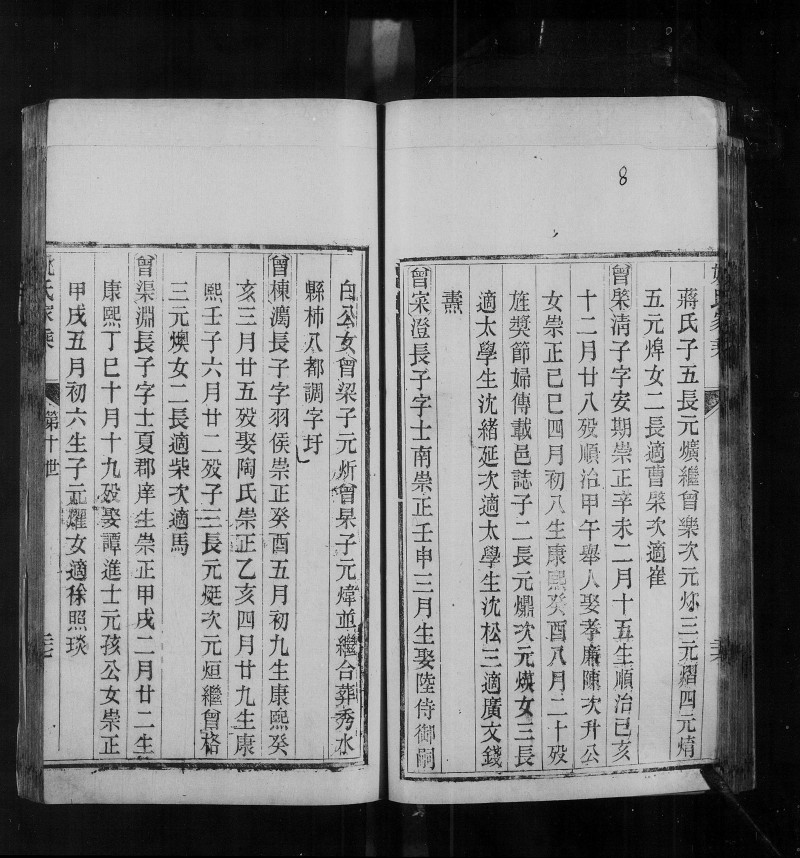 8
蔣氏子五長元爌繼曾樂次元㷂三元熠四元焴
五元焯女二長適曹檠次適崔
曾檠清子字安期崇正辛未二月十五生順治己亥
十二月廿八殁順治甲午舉人娶孝廉陳次升公
女崇正己巳四月初八生康熙癸酉八月二十殁
旌奬節婦傳載邑誌子二長元鼎次元煐女三長
適太學生沈緒延次適太學生沈松三適廣文錢
燾
曾寀澄長子字士南崇正壬申三月生娶陸侍御嗣
白公女曾梁子元炘曾杲子元煒並繼合葬秀水
縣柿八都調字圩
曾棟澫長子字羽侯崇正癸酉五月初九生康熙癸
亥三月廿五殁娶陶氏崇正乙亥四月廿九生康
熙壬子六月廿二殁子三長元烶次元烜繼曾格
三元燠女二長適柴次適馬
曾渠淵長子字士夏郡庠生崇正甲戌二月廿二生
康熙丁巳十月十九殁娶譚進士元孩公女崇正
甲戌五月初六生子元燿女適徐照琰
氏家乘 第十世